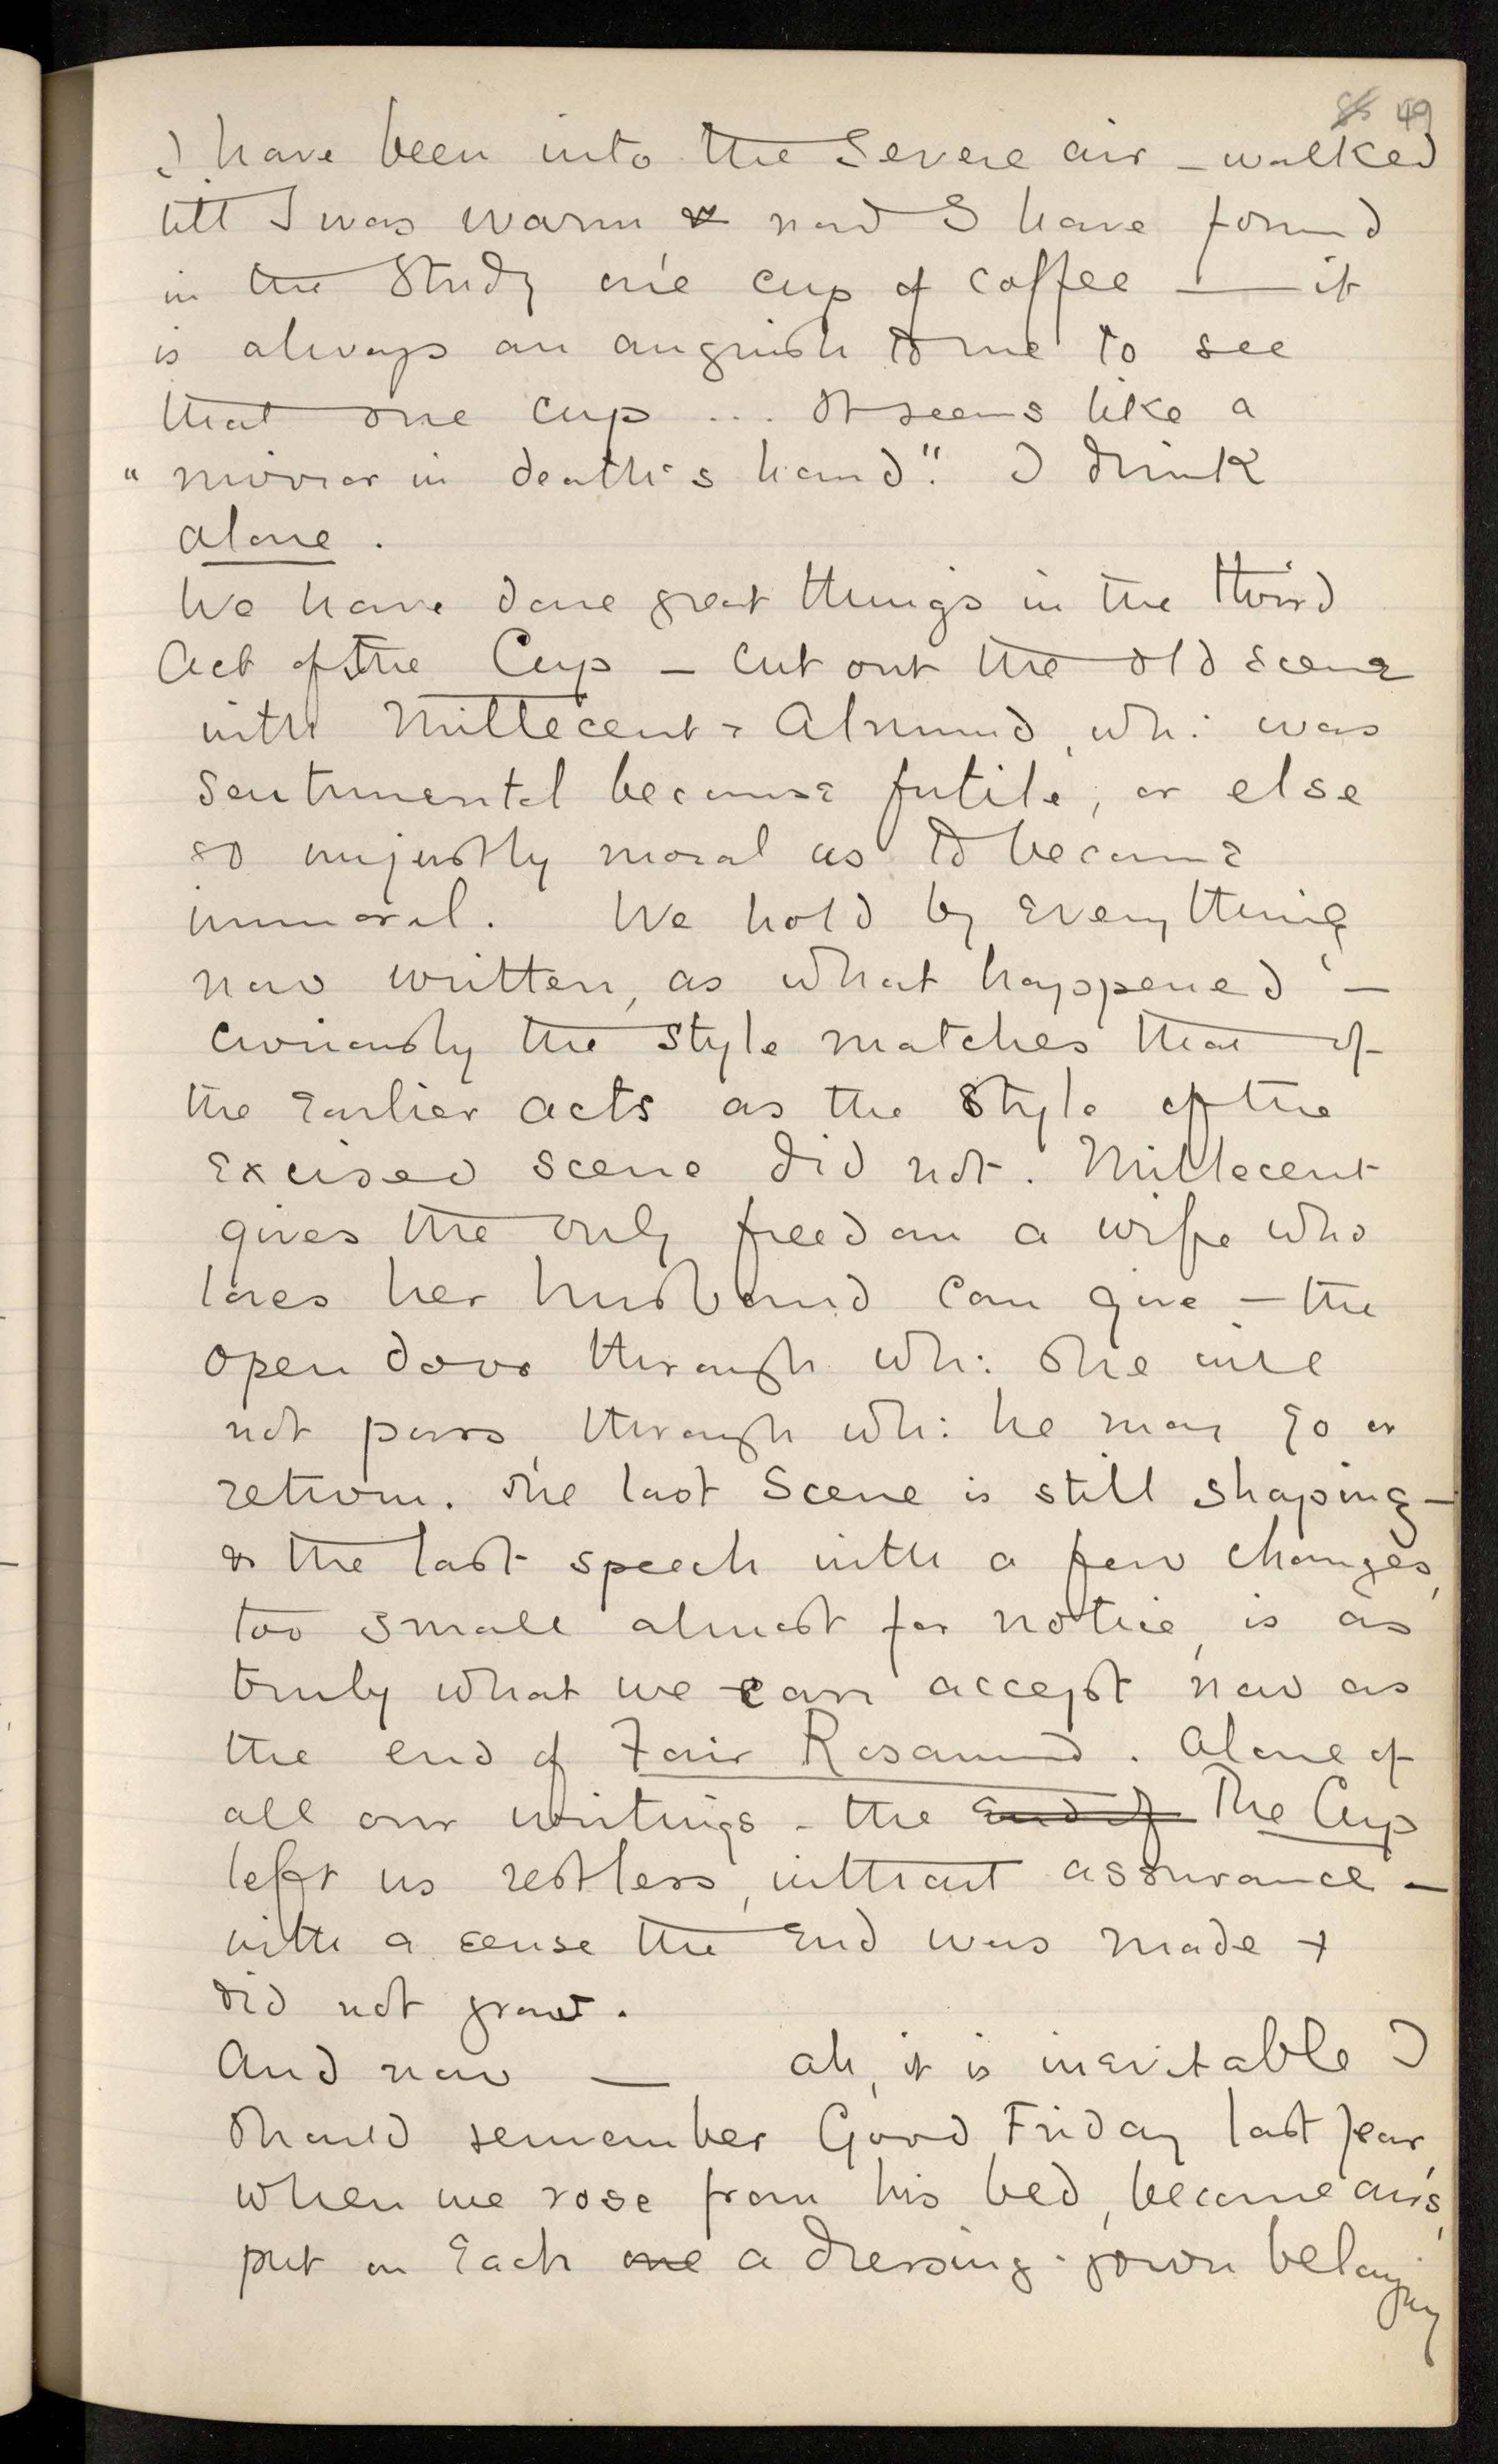 49
I have been into the severe air – walked
till I was warm & now I have found
in the Study one cup of coffee — it
is always an anguish to me to see
that one cup ... It seems like a
"mirror in death's hand". I drink
alone.
We have done great things in the third
Act of the Cup – cut out the old scene
with Millecent & Almund, wh: was
sentimental because futile, or else
so unjustly moral as to become
immoral. We hold by everything
now written, as what happened –
curiously the style matches that of
the earlier acts as the style of the
excised scene did not. Millecent
gives the only freedom a wife who
loves her husband can give – the
open door through wh: she will
not pass, through wh: he may go or
return. The last Scene is still shaping –
& the last speech with a few changes,
too small almost for notice, is as
truly what we can accept now as
the end of Fair Rosamund. Alone of
all our writings – the end of The Cup
left us restless, without assurance –
with a sense the end was made &
did not grow.
And now — ah, it is inevitable I
should remember Good Friday last year,
when we rose from his bed, become ours,
put on each one a dressing-gown belonging